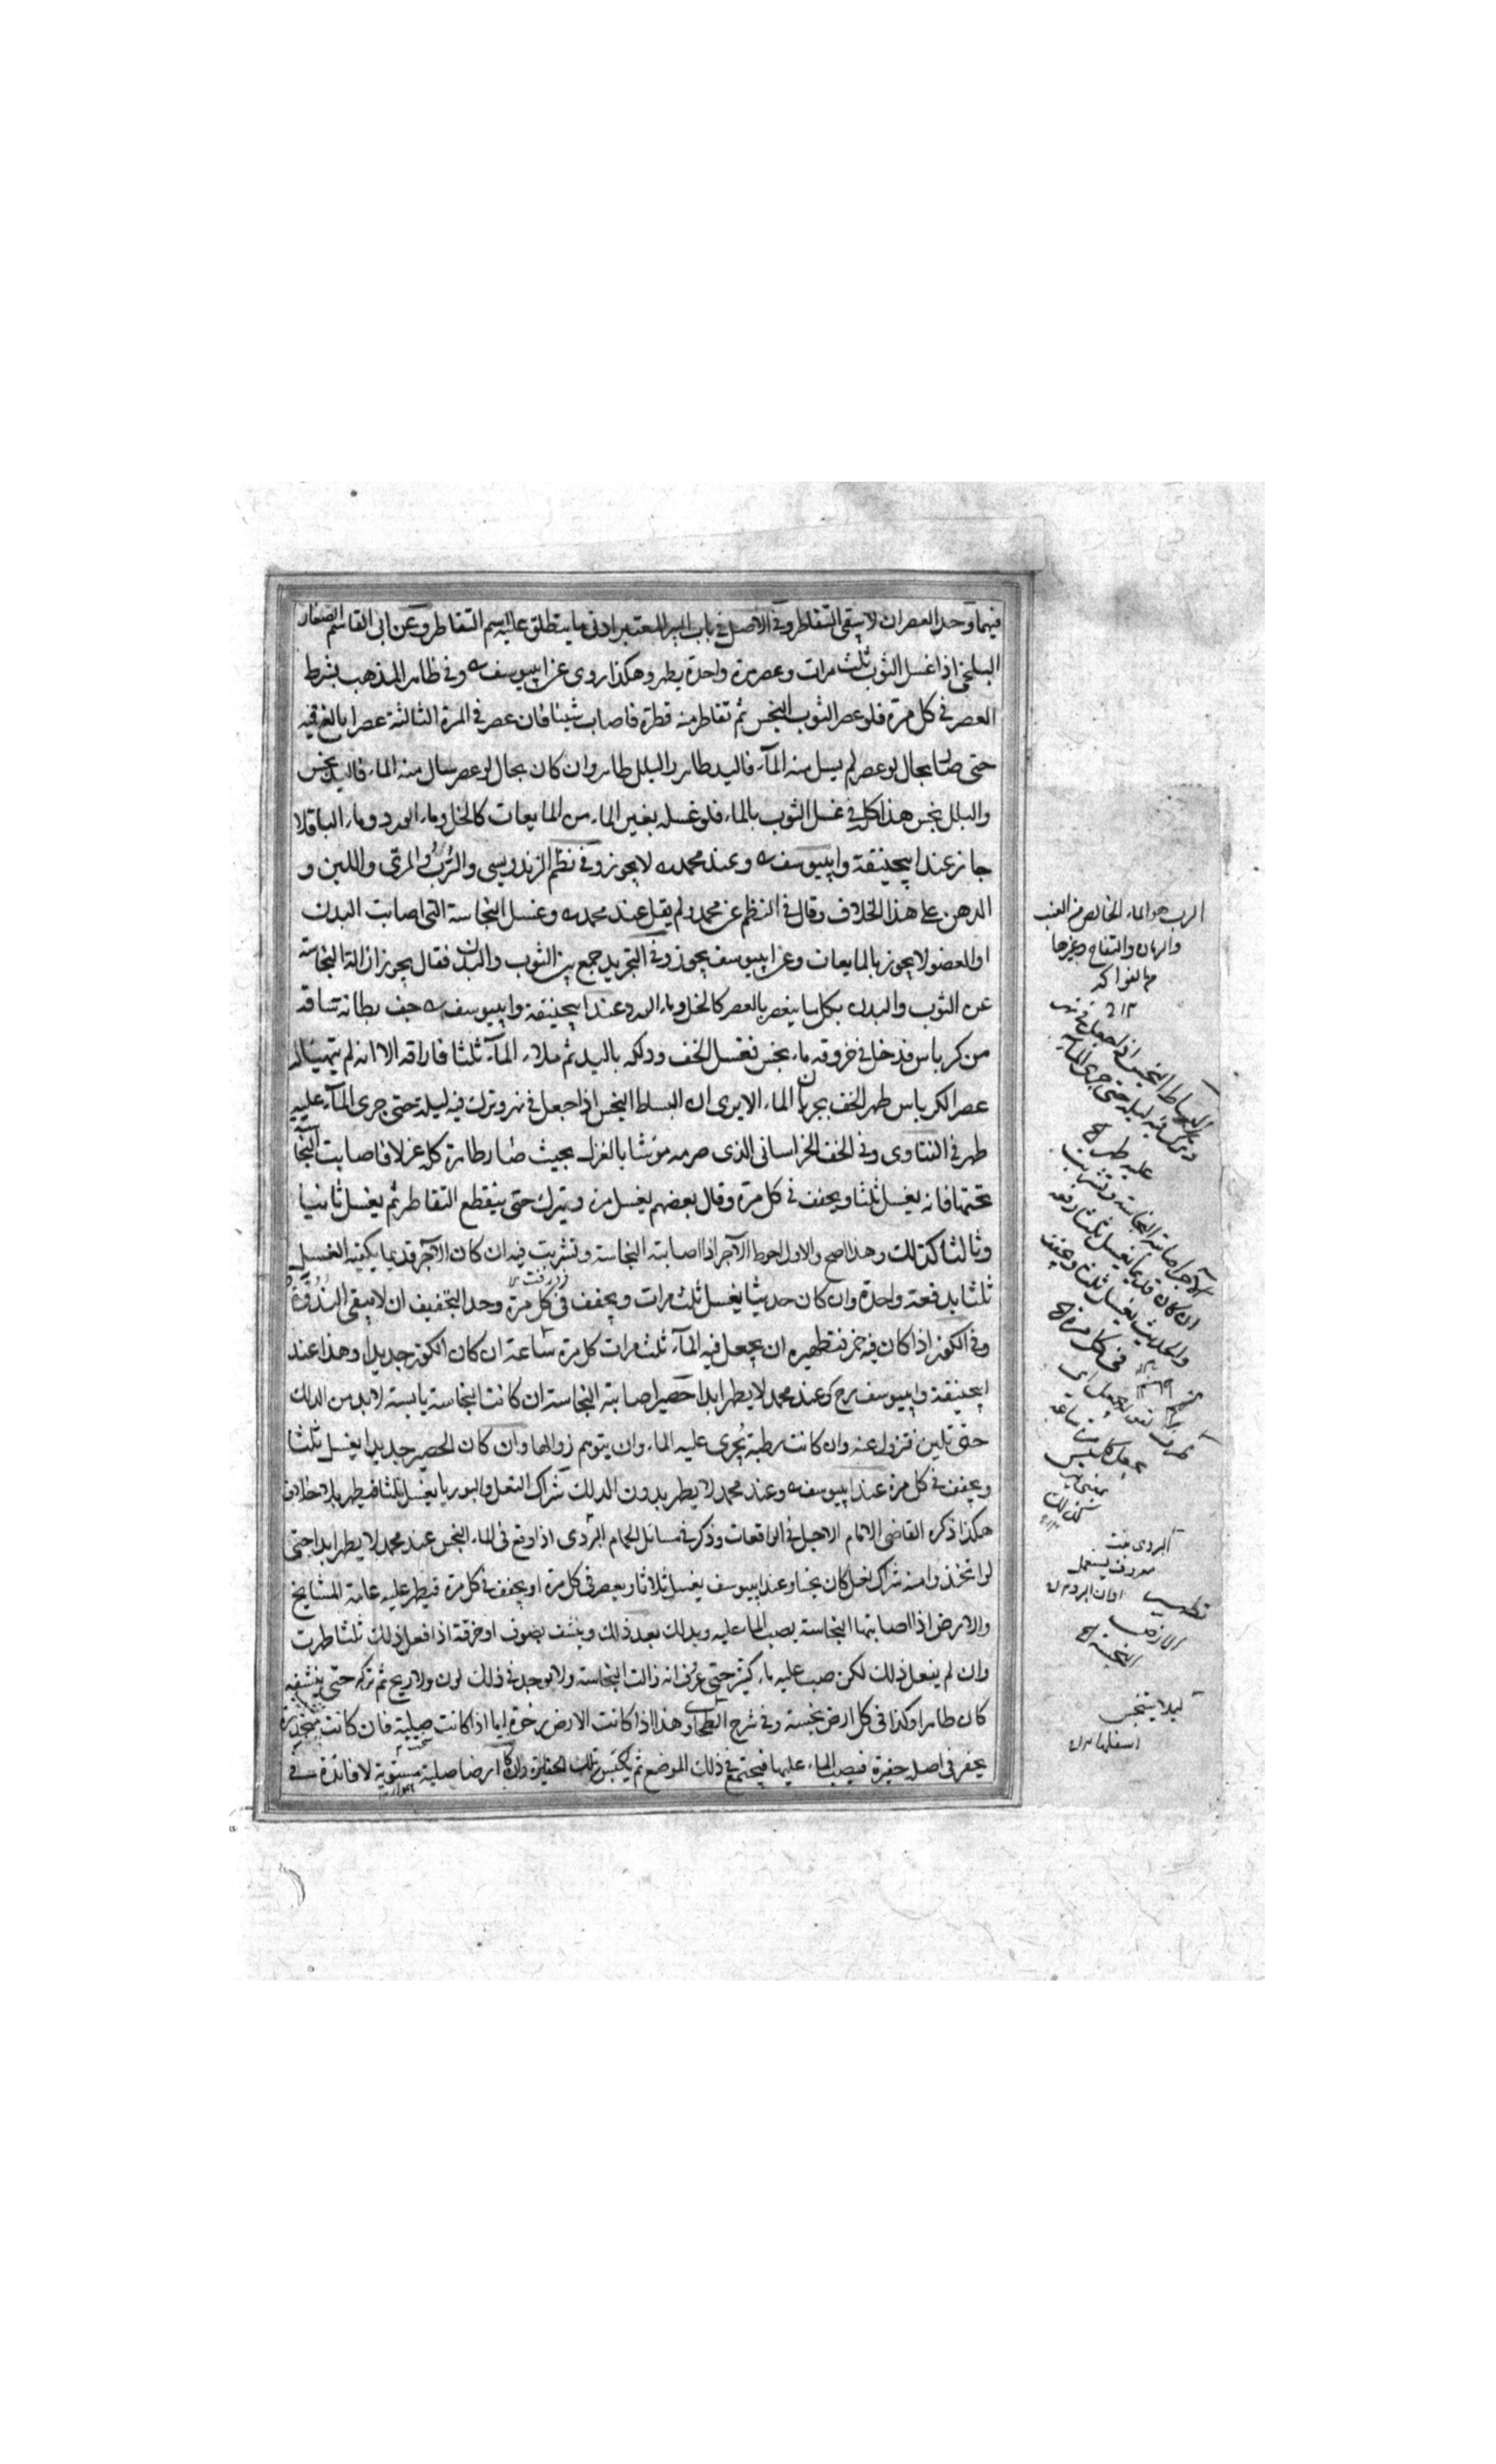 فيهما وحد العصر ان لا يبقى التقاطر وفي الاصل في باب البير المعتبر ادنى ما ينطلق عليه اسم التقاطر وعن ابى القاسم الصفار
البلخى اذا غسل الثوب ثلث مرات وعصر مرة واحدة يطهر وهكذا روى عن ابيوسف وفى ظاهر المذهب يشرط
العصر فى كل مرة فلو عصر الثوب النجس ثم تقاطر منه قطرة فاصاب شيئا فان عصر فى المرة الثالثة عصرا بالغ فيه
حتى صار بحال لو عصر لم يسل منه المآء فاليد طاهر والبلل طاهر وان كان بحال لو عصر سال منه الماء فاليد نجس
والبلل نجس هذا كل فى غسل الثوب بالماء فلو غسله بغير الماء من المايعات كالخل وماء الورد وماء الباقلا
جاز عند ابيحنيفة وابيوسف وعند محمد لا يجوز وفى نظم الزندويسى والرُّبُّ والمرى واللبن و
الدهن على هذا الخلاف وقال فى النظم عن محمد ولم يقل عند محمد وغسل النجاسة التى اصابت البدن
او العضو لا يجوز بالمايعات وعن ابيوسف يجوز وفى التجريد جمع بين الثوب والبدن فقال يجوز ازالة النجاسة
عن الثوب والبدن بكل ما ينعصر بالعصر كالخل وماء الورد عند ابيحنيفة وابيوسف خف بطانة ساقه
من كرباس فدخل فى خروقه ماء نجس فغسل الخف ودلكه باليد ثم ملاء المآء ثلثا فاراقه الا انه لم يتهيئا له
عصر الكرباس طهر الخف بجريان الماء الا يرى ان البساط النجس اذا جعل فى نهر وترك فيه ليلة حتى جرى المآء عليه
طهر فى الفتاوى وفى الخف الخراسانى الذى صرمه موشا بالغزل بحيث صار ظاهره كله غزلا فاصابت النجا
تحتها فانه يغسل ثلثا ويجفف فى كل مرة وقال بعضهم يغسل مرة ويترك حتى ينقطع التقاطر ثم يغسل ثانيا
وثالثا كذلك وهذا اصح والاول احوط الآجر اذا اصابته النجاسة وتشربت فيه ان كان الآجر قديما يكفيه الغسل
ثلثا بدفعة واحدة وان كان حديثا يغسل ثلث مرات ويجفف فى كل مرة وحد التجفيف ان لا يبقى النُدُوَّة
وفى الكوز اذا كان فيه خمر فتطهيره ان يجعل فيه المآء ثلث مرات كل مرة ساعة ان كان الكوز جديدا وهذا عند
ابيحنيفة وابيوسف رح وعند محمد لا يطهر ابدا حصير اصابته النجاسة ان كانت النجاسة يابسة لا بد من الدلك
حتى تلين فتزول عنه وان كانت رطبة يُجرى عليه الماء وان يتوهم زوالها وان كان الحصير جديدا يغسل ثلثا
ويجفف فى كل مرة عند ابيوسف وعند محمد لا يطهر بدون الدلك شراك النعل والبوريا يغسل ثلثا فيطهر بلا خلاف
هكذا ذكره القاضى الامام الاجل فى الواقعات وذكر فى مسائل الحمام البردى اذا وقع فى الماء النجس عند محمد لا يطهر ابدا حتى
لو اتخذوا منه شراك نعل كان نجسا وعند ابيوسف يغسل ثلاثا ويعصر فى كل مرة او يجفف فى كل مرة فيطهر عليه عامة المشايخ
والارض اذا اصابتها النجاسة يصب الماء عليه ويدلك بعد ذلك وينشف بصوف او خرقة اذا فعل ذلك ثلثا طهرت
وان لم يفعل ذلك لكن صب عليه ماء كثير حتى عرف انه زالت النجاسة ولا يوجد فى ذلك لون ولا ريح ثم تركه حتى ينشفه
كان طاهرا وكذا فى كل ارض نجسة وفى شرح الطحاوى هذا اذا كانت الارض رخوة اما اذا كانت صلبة فان كانت منحدرة
يحفر فى اصله حفيرة فيصب الماء عليها فيجتمع فى ذلك الموضع ثم يكبس تلك الحفيرة وان كان ارضا صلبة مستوية لا فائدة فى
الرب هو الماء الخالص من العنب
والرمان والتفاح وغيرها
من الفواكه
البساط النجس اذا جعل فى نهر
وترك فيه ليلة حتى جرى المآء
عليه طهر
الآجر اصابته النجاسة وتشربت
ان كان قديما يغسل ثلثا دفعة
والحديث يغسل ثلثا ويجفف
فى كل مرة
البردى نبت
معروف يستعمل
تطهير
الارض
النجسة